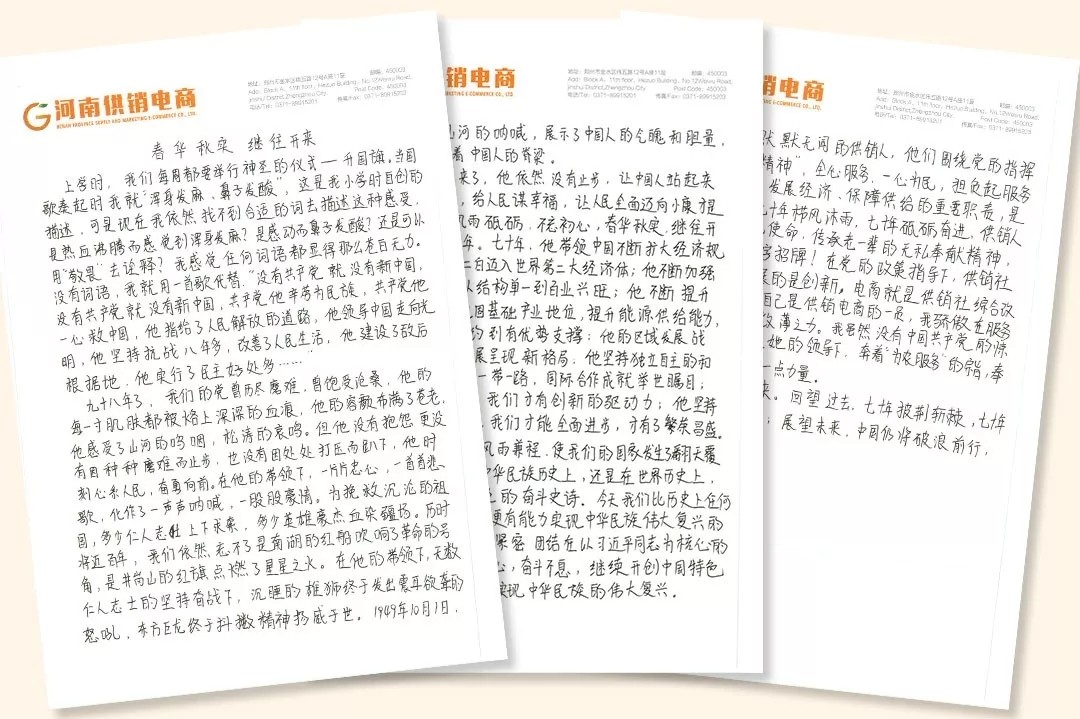 河南供销电商
HENAN PROVINCE SUPPLY AND MARKETING E-COMMERCE CO., LTD.
地址：郑州市金水区纬五路12号A座11层 邮编：450003
Add：Block A, 11th floor, Hezuo Building, No.12Weiwu Road,
Jinshui District,Zhengzhou City Post Code: 450003
电话/Tel：0371-89915201 传真/Fax：0371-89915203
春华秋实 继往开来
上学时，我们每周都要举行神圣的仪式——升国旗。当国
歌奏起时我就"浑身发麻，鼻子发酸"，这是我小学时自创的
描述，可是现在我依然找不到合适的词去描述这种感受，
是热血沸腾而感觉到浑身发麻？是感动而鼻子发酸？还是可以
用"敬畏"去诠释？我感觉任何词语都显得那么苍白无力。
没有词语，我就用一首歌代替，"没有共产党就没有新中国，
没有共产党就没有新中国，共产党他辛劳为民族，共产党他
一心救中国，他指给了人民解放的道路，他领导中国走向光
明，他坚持抗战八年多，改善了人民生活，他建设了敌后
根据地，他实行了民主好处多……"
九十八年了，我们的党曾历尽磨难，曾饱受沧桑，他的
每一寸肌肤都被烙上深深的血浪，他的容颜布满了苍老，
他感受了山河的呜咽，松涛的哀鸣。但他没有抱怨更没
有因种种磨难而止步，也没有因处处打压而卧下，他时
刻心系人民，奋勇向前。在他的带领下，一片片忠心，一首首悲
歌，化作了一声声呐喊，一股股豪情。为挽救沉沦的祖
国，多少仁人志士上下求索，多少英雄豪杰血染疆场。历时
将近百年，我们依然忘不了是南湖的红船吹响了革命的号
角，是井岗山的红旗点燃了星星之火。在他的带领下，无数
仁人志士的坚持奋战下，沉睡的雄狮终于发出震耳欲聋的
怒吼，东方巨龙终于抖擞精神扬威于世。1949年10月1日，
销电商
MARKETING E-COMMERCE CO., LTD.
地址：郑州市金水区纬五路12号A座11层 邮编：450003
Add：Block A, 11th floor, Hezuo Building, No.12Weiwu Road,
Jinshui District,Zhengzhou City Post Code: 450003
电话/Tel：0371-89915201 传真/Fax：0371-89915203
河的呐喊，展示了中国人的气魄和胆量，
着中国人的脊梁。
来了，他依然没有止步，让中国人站起来
，给人民谋幸福，让人民全面迈向小康才是
风雨砥砺，不忘初心，春华秋实，继往开
年。七十年，他带领中国不断扩大经济规
白迈入世界第二大经济体；他不断加强
从结构单一到百业兴旺；他不断提升
固基础产业地位，提升能源供给能力，
约到有优势支撑；他的区域发展战
展呈现新格局，他坚持独立自主的和
一带一路，国际合作成就举世瞩目；
我们才有创新的驱动力；他坚持
，我们才能全面进步，才有了繁荣昌盛。
风雨兼程，使我们的国家发生了翻天覆
华民族历史上，还是在世界历史上，
的奋斗史诗。今天我们比历史上任何
更有能力实现中华民族伟大复兴的
紧密团结在以习近平同志为核心的
心，奋斗不息，继续开创中国特色
实现中华民族的伟大复兴。
电商
COMMERCE CO., LTD.
地址：郑州市金水区纬五路12号A座11层 邮编：450003
Add：Block A, 11th floor, Hezuo Building, No.12Weiwu Road,
Jinshui District,Zhengzhou City Post Code: 450003
电话/Tel：0371-89915201 传真/Fax：0371-89915203
默无闻的供销人，他们围绕党的指挥
精神"，全心服务，一心为民，担负起服务
发展经济、保障供给的重要职责，是
十年栉风沐雨，七十年砥砺奋进，供销人
使命，传承老一辈的无私奉献精神，
字招牌！在党的政策指导下，供销社
的是创新。电商就是供销社综合改
自己是供销电商的一员，我骄傲在服务
微薄之力。我虽然没有中国共产党的
她的领导下，奔着"为农服务"的宗旨，奉
一点力量。
来。回望过去，七十年披荆斩棘，七十年
；展望未来，中国仍将破浪前行，